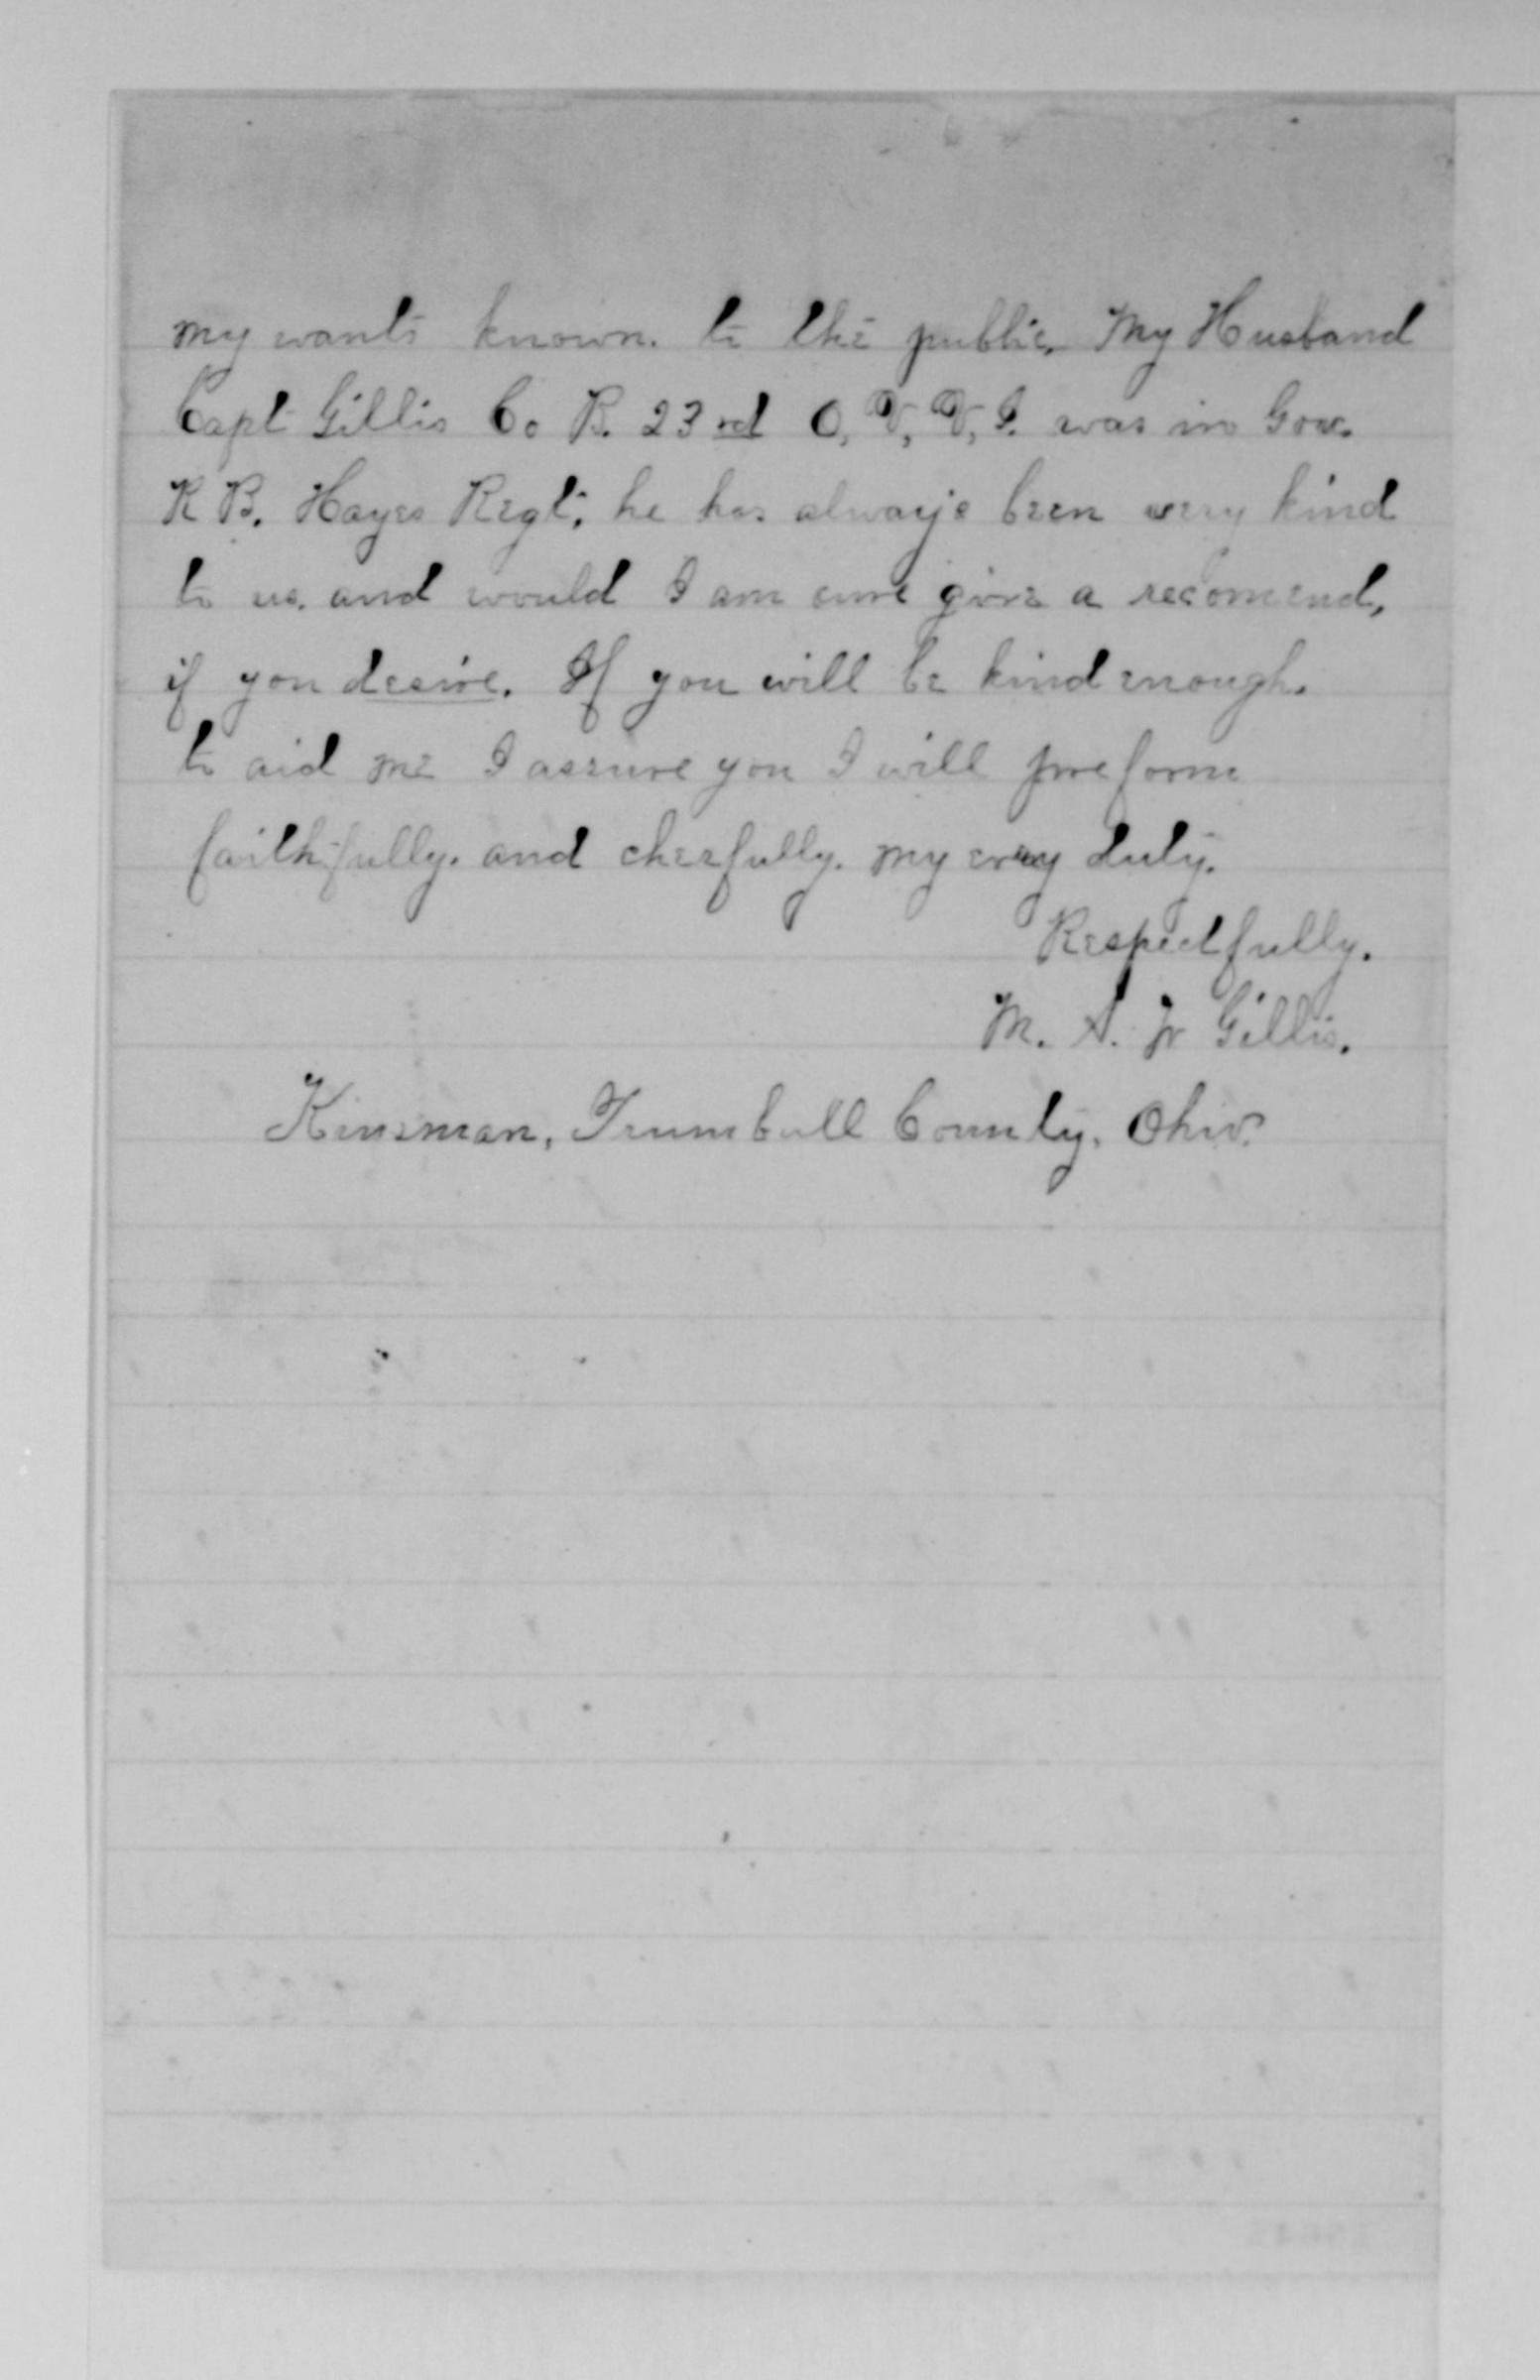 my wants known. to the public. My Husband
Capt Gillis Co B. 23rd O, V, V, I. was in Gov.
R B. Hayes Regt; he has always been very kind
to us. and would I am sure give a recomend,
if you desire. If you will be kind enough.
to aid me I assure you I will preform
faithfully. and cherfully. my evry duty.
Respectfully.
M. A. Gillis.
Kinsman, Trumbull County, Ohio.